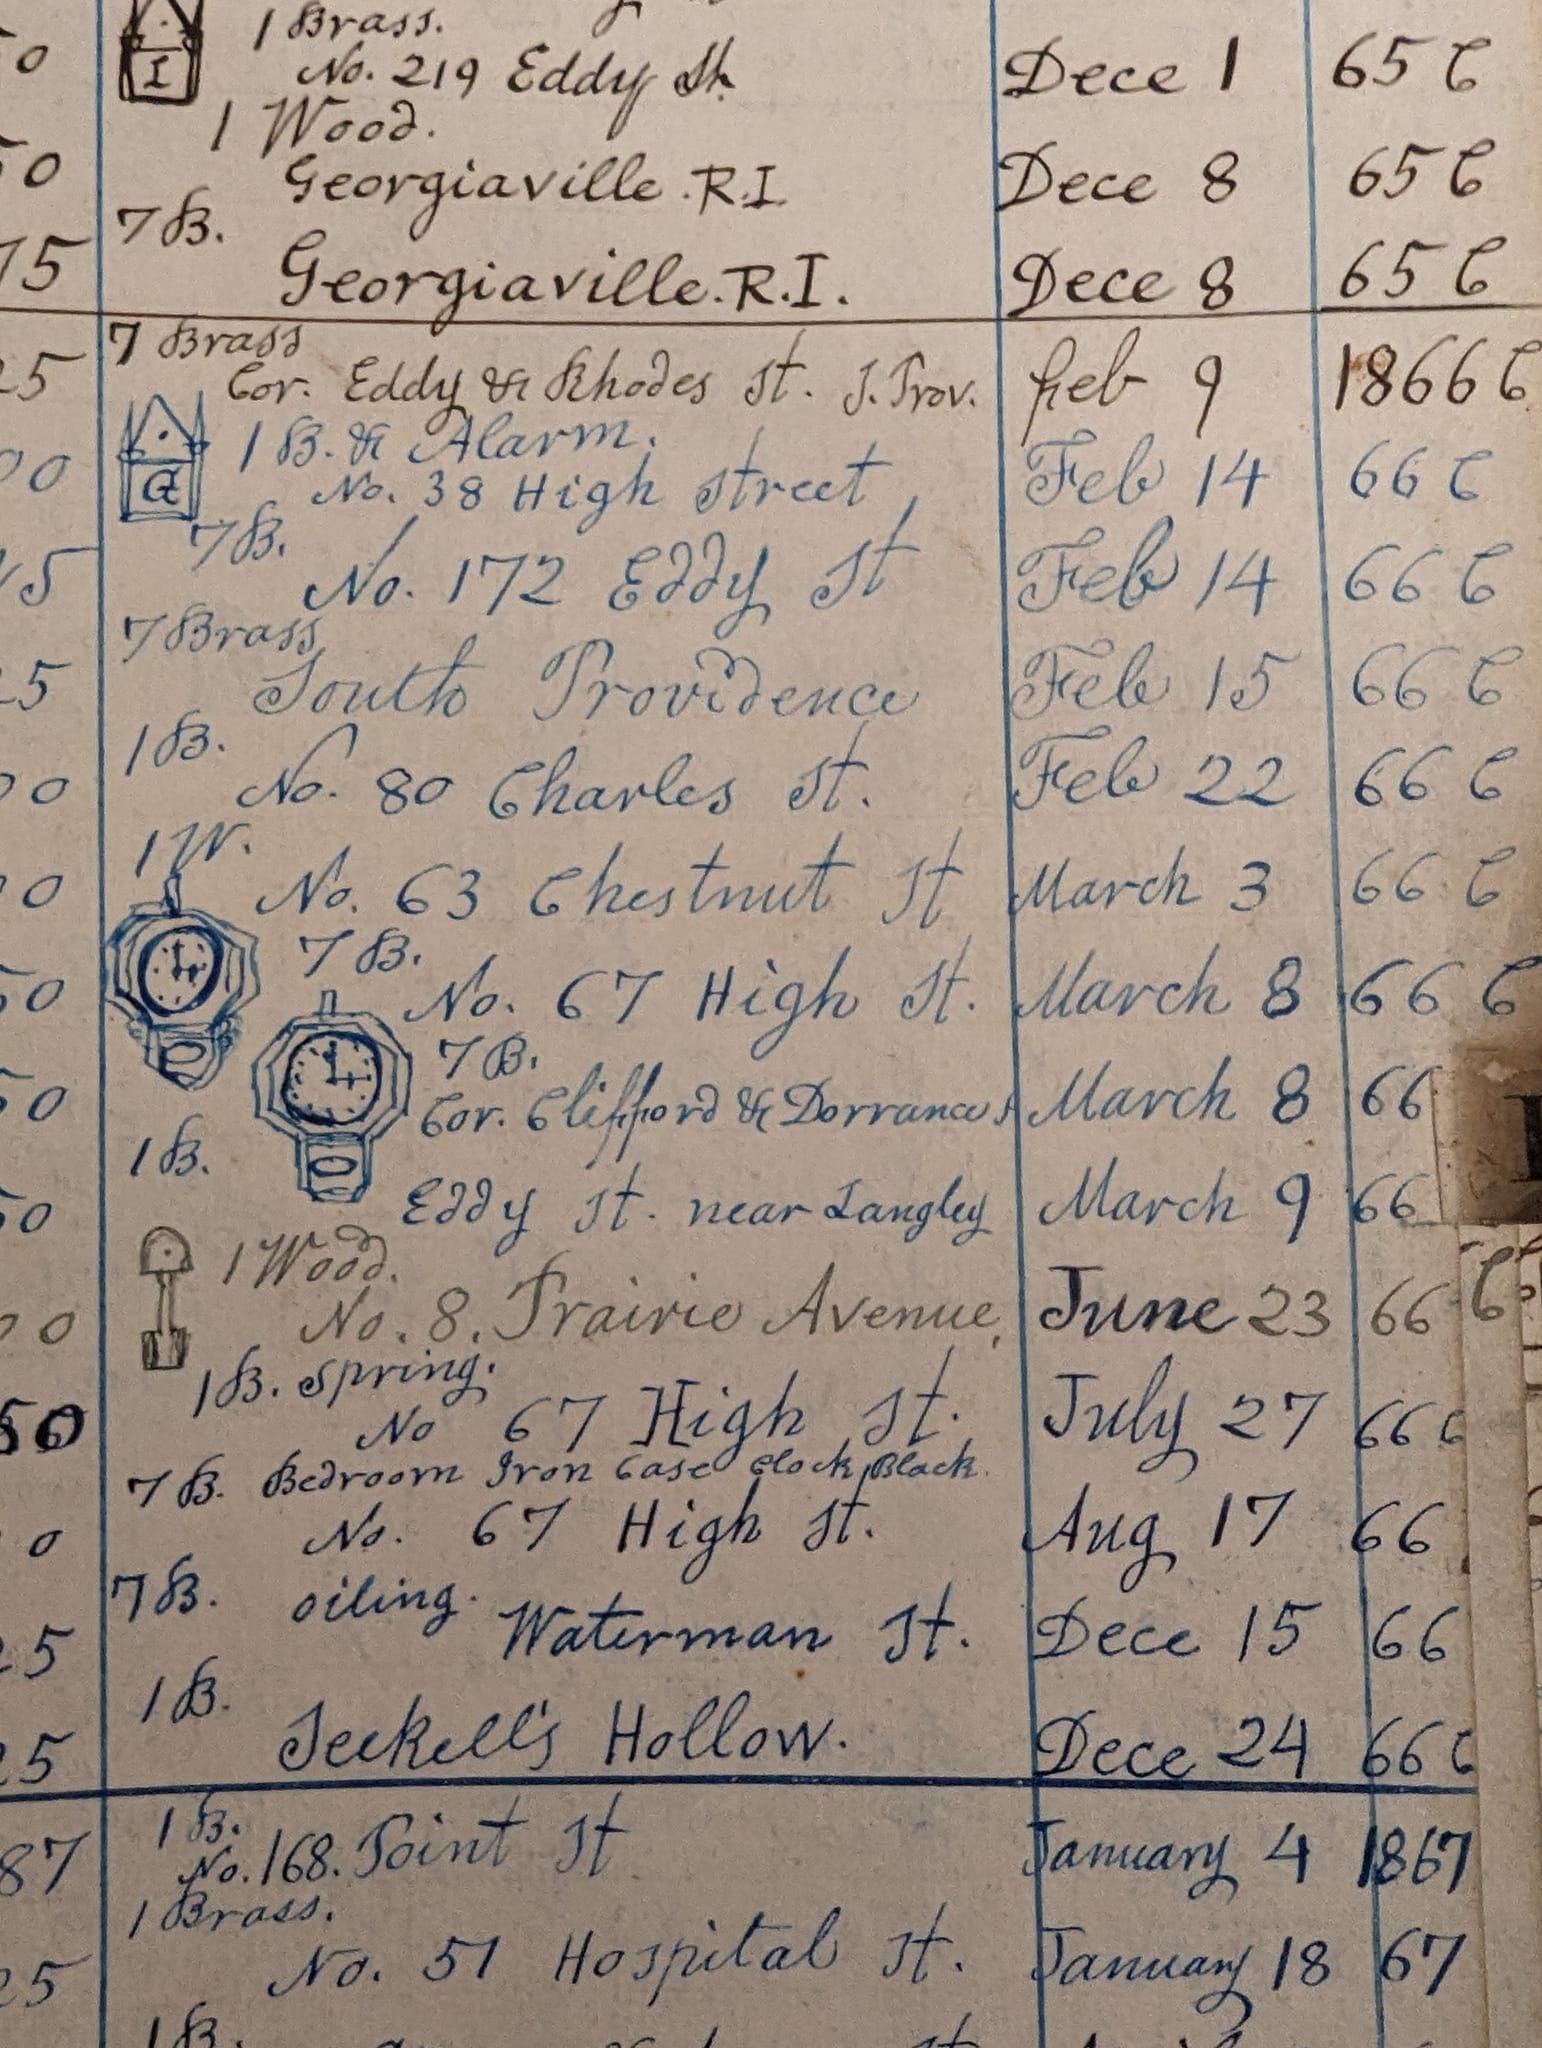 1 Brass.
0 I No. 219 Eddy St. Dece 1 65 C
1 Wood.
50 Georgiaville R.I. Dece 8 65 C
7 B.
75 Georgiaville. R.I. Dece 8 65 C
7 Brass
25 Cor. Eddy & Rhodes St. S. Prov. feb 9 1866 C
1 B. & Alarm.
00 G No. 38 High street Feb 14 66 C
7 B.
5 No. 172 Eddy St Feb 14 66 C
7 Brass
25 South Providence Feb 15 66 C
1 B.
00 No. 80 Charles St. Feb 22 66 C
1 W.
00 No. 63 Chestnut St March 3 66 C
7 B.
50 No. 67 High St. March 8 66 C
7 B.
50 Cor. Clifford & Dorrance s March 8 66
1 B.
50 Eddy St. near Langley March 9 66
1 Wood.
00 No. 8. Prairie Avenue, June 23 66 C
1 B. Spring.
50 No 67 High St. July 27 66 C
7 B. Bedroom Iron Case Clock, Black.
0 No. 67 High St. Aug 17 66
7 B. oiling.
25 Waterman St. Dece 15 66
1 B.
25 Seekell's Hollow. Dece 24 66 C
1 B.
87 No. 168. Point St January 4 1867
1 Brass.
25 No. 51 Hospital St. January 18 67
1 B.